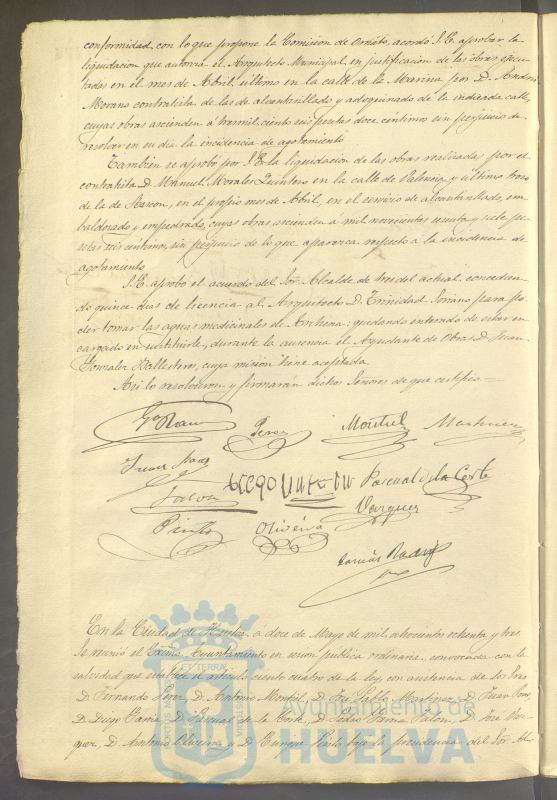 conformidad con lo que propone la Comision de Ornato, acordó S.E. aprobar la
liquidacion que autoriza el Arquitecto Municipal en justificacion de las obras ejecu-
tadas en el mes de Abril último en la calle de la Marina por D. Andres
Morano contratista de las de alcantarillado y adoquinado de la indicada calle,
cuyas obras ascienden á tres mil ciento seis pesetas doce centimos sin perjuicio de
resolver en su dia la incidencia de agotamiento
Tambien se aprobó por S.E. la liquidacion de las obras realizadas por el
contratista D. Manuel Morales Quintero en la calle de Palencia y último trozo
de la de Rascon, en el propio mes de Abril, en el servicio de alcantarillado, em-
baldosado y empedrado, cuyas obras ascienden á mil novecientas y siete pe-
setas seis centimos, sin perjuicio de lo que aparezca respecto a la incidencia de
agotamiento
S.E. aprobó el acuerdo del Sor. Alcalde de tres del actual concedien-
do quince dias de licencia al Arquitecto D. Trinidad Soriano para po-
der tomar las aguas medicinales de Archena: quedando enterado de estar en-
cargado en sustituirle, durante la ausencia el Ayudante de Obras D. Juan
Gonzalez Ballesteros, cuya mision tiene aceptada
Asi lo resolvieron y firmarán dichos Señores de que certifico =
Perez Montiel Martinez
Pascual de la Corte
Vazquez
Pinto Oliveira
En la Ciudad de Huelva á doce de Mayo de mil ochocientos ochenta y tres
se reunió el Excmo. Ayuntamiento en sesion pública ordinaria, convocada con la
salvedad que establece el articulo ciento cuatro de la ley con asistencia de los Sres.
D. Fernando Perez, D. Antonio Montiel, D. José Pablo Martinez, D. Juan
D. Diego D. Pascual de la Corte, D. Pedro D. José Vaz-
quez, D. Antonio Oliveira y D. Enrique Pinto bajo la presidencia del Sor. Al-
Ayuntamiento de
HUELVA